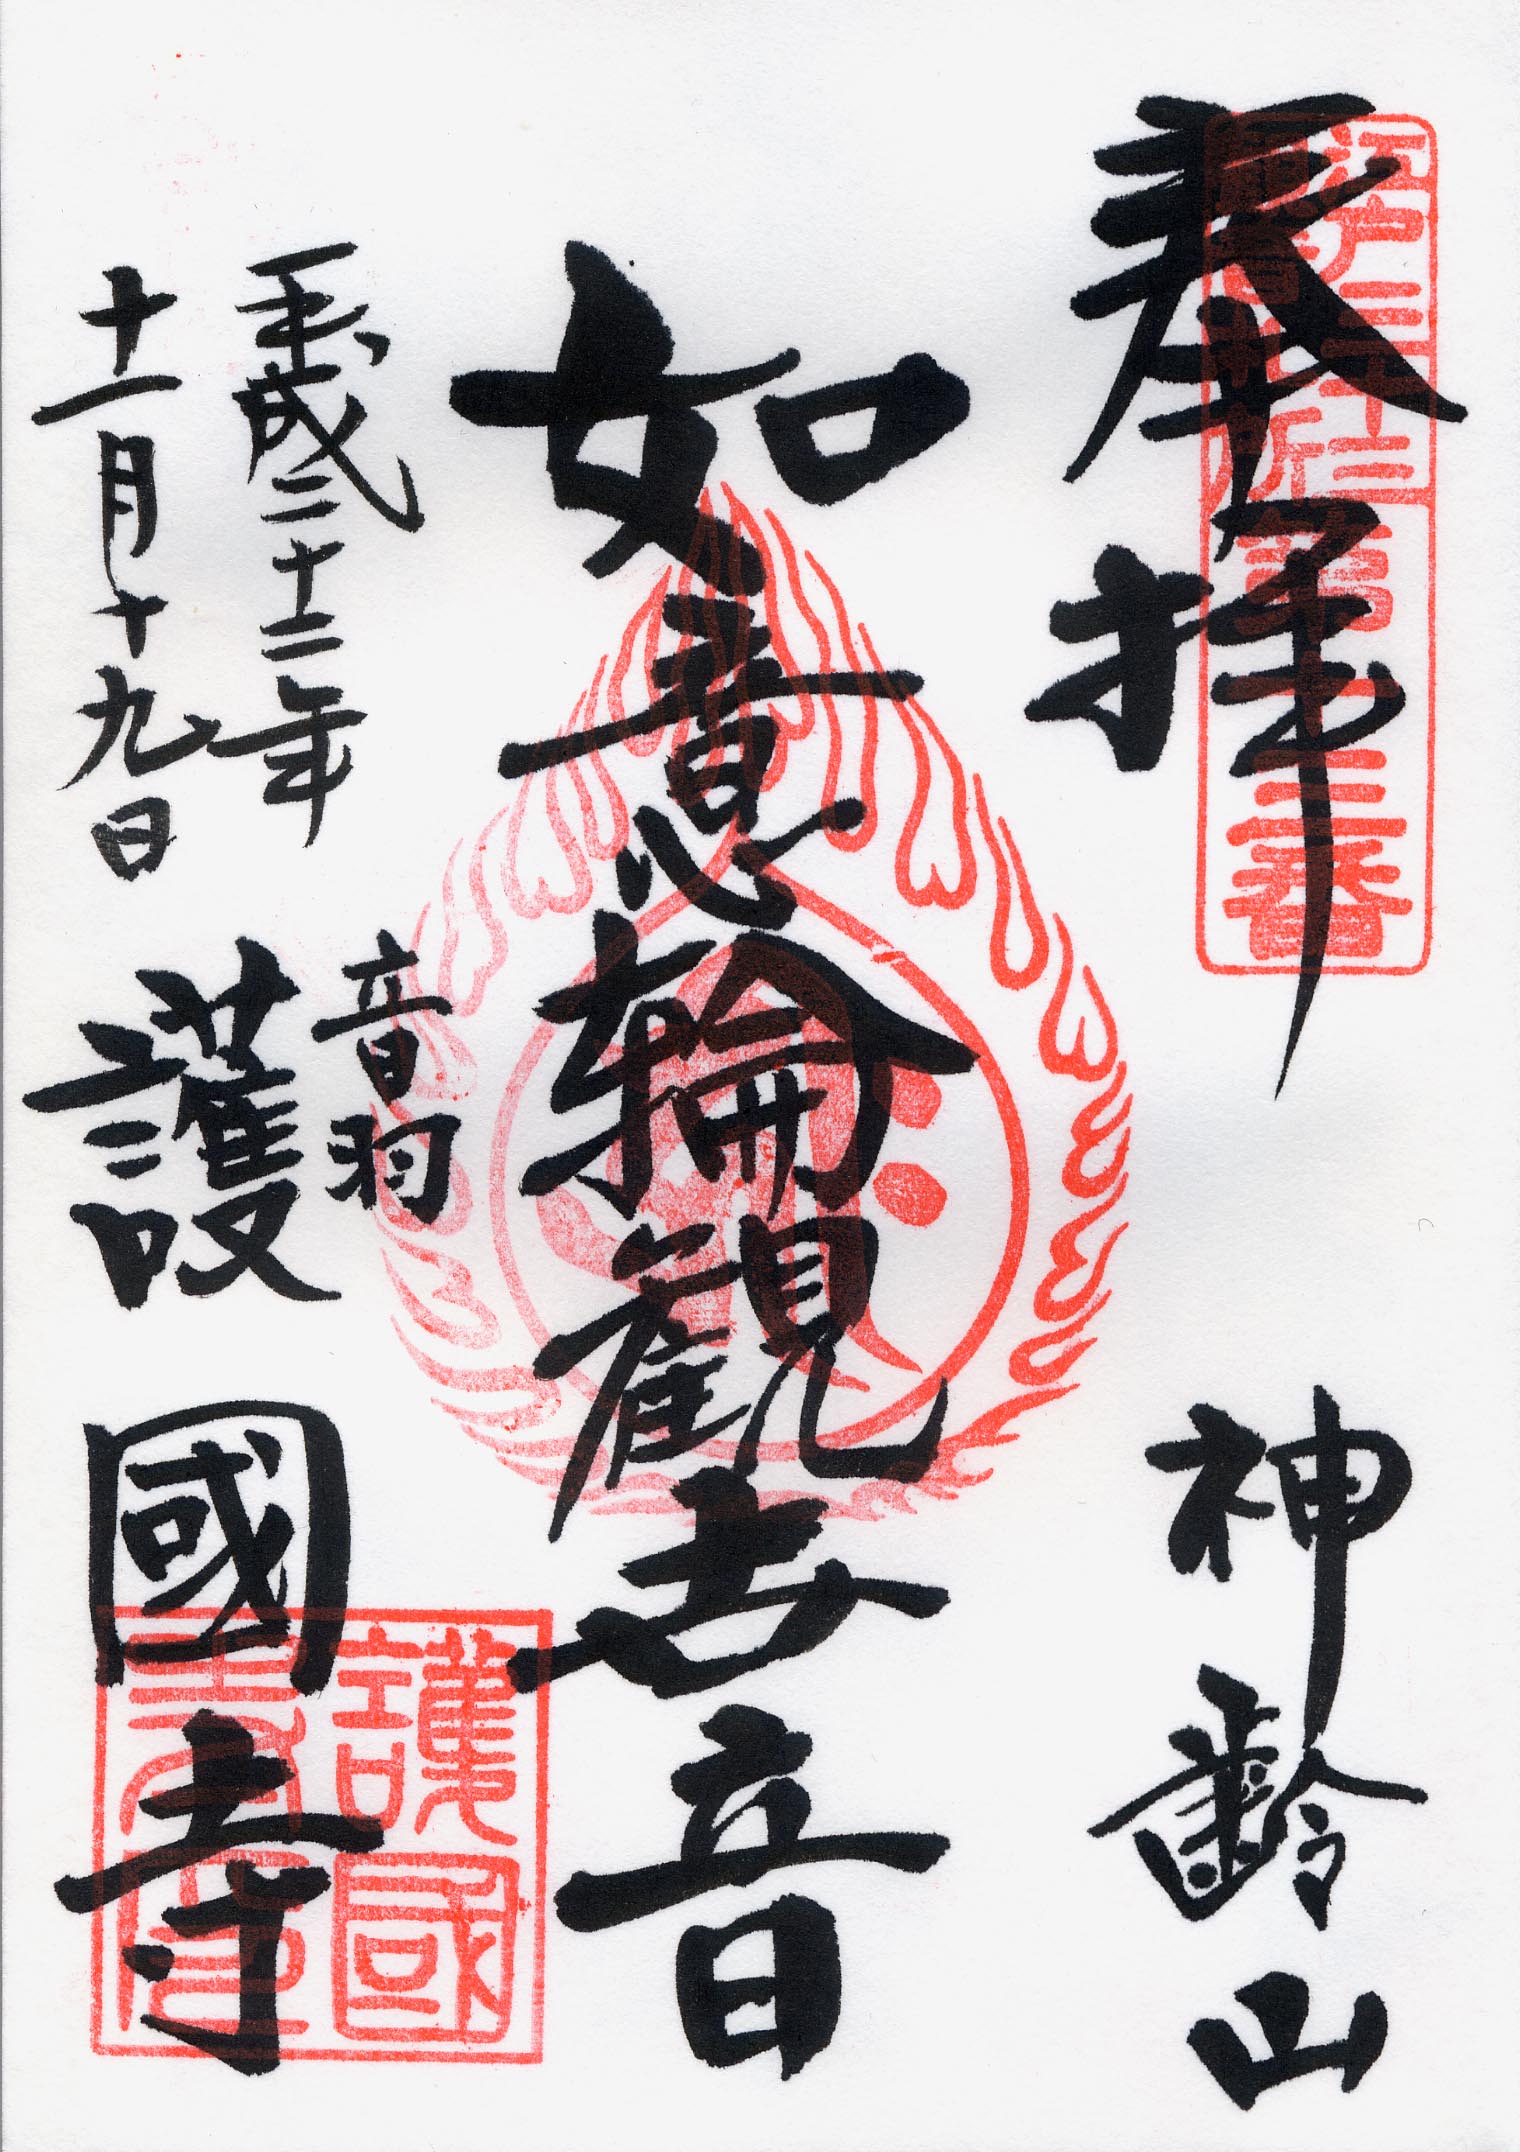 奉拝
神齢山
江戸三十三
観音札所
第十三番
如意輪観世音
平成二十二年
十一月十九日
音羽
護國寺
護國